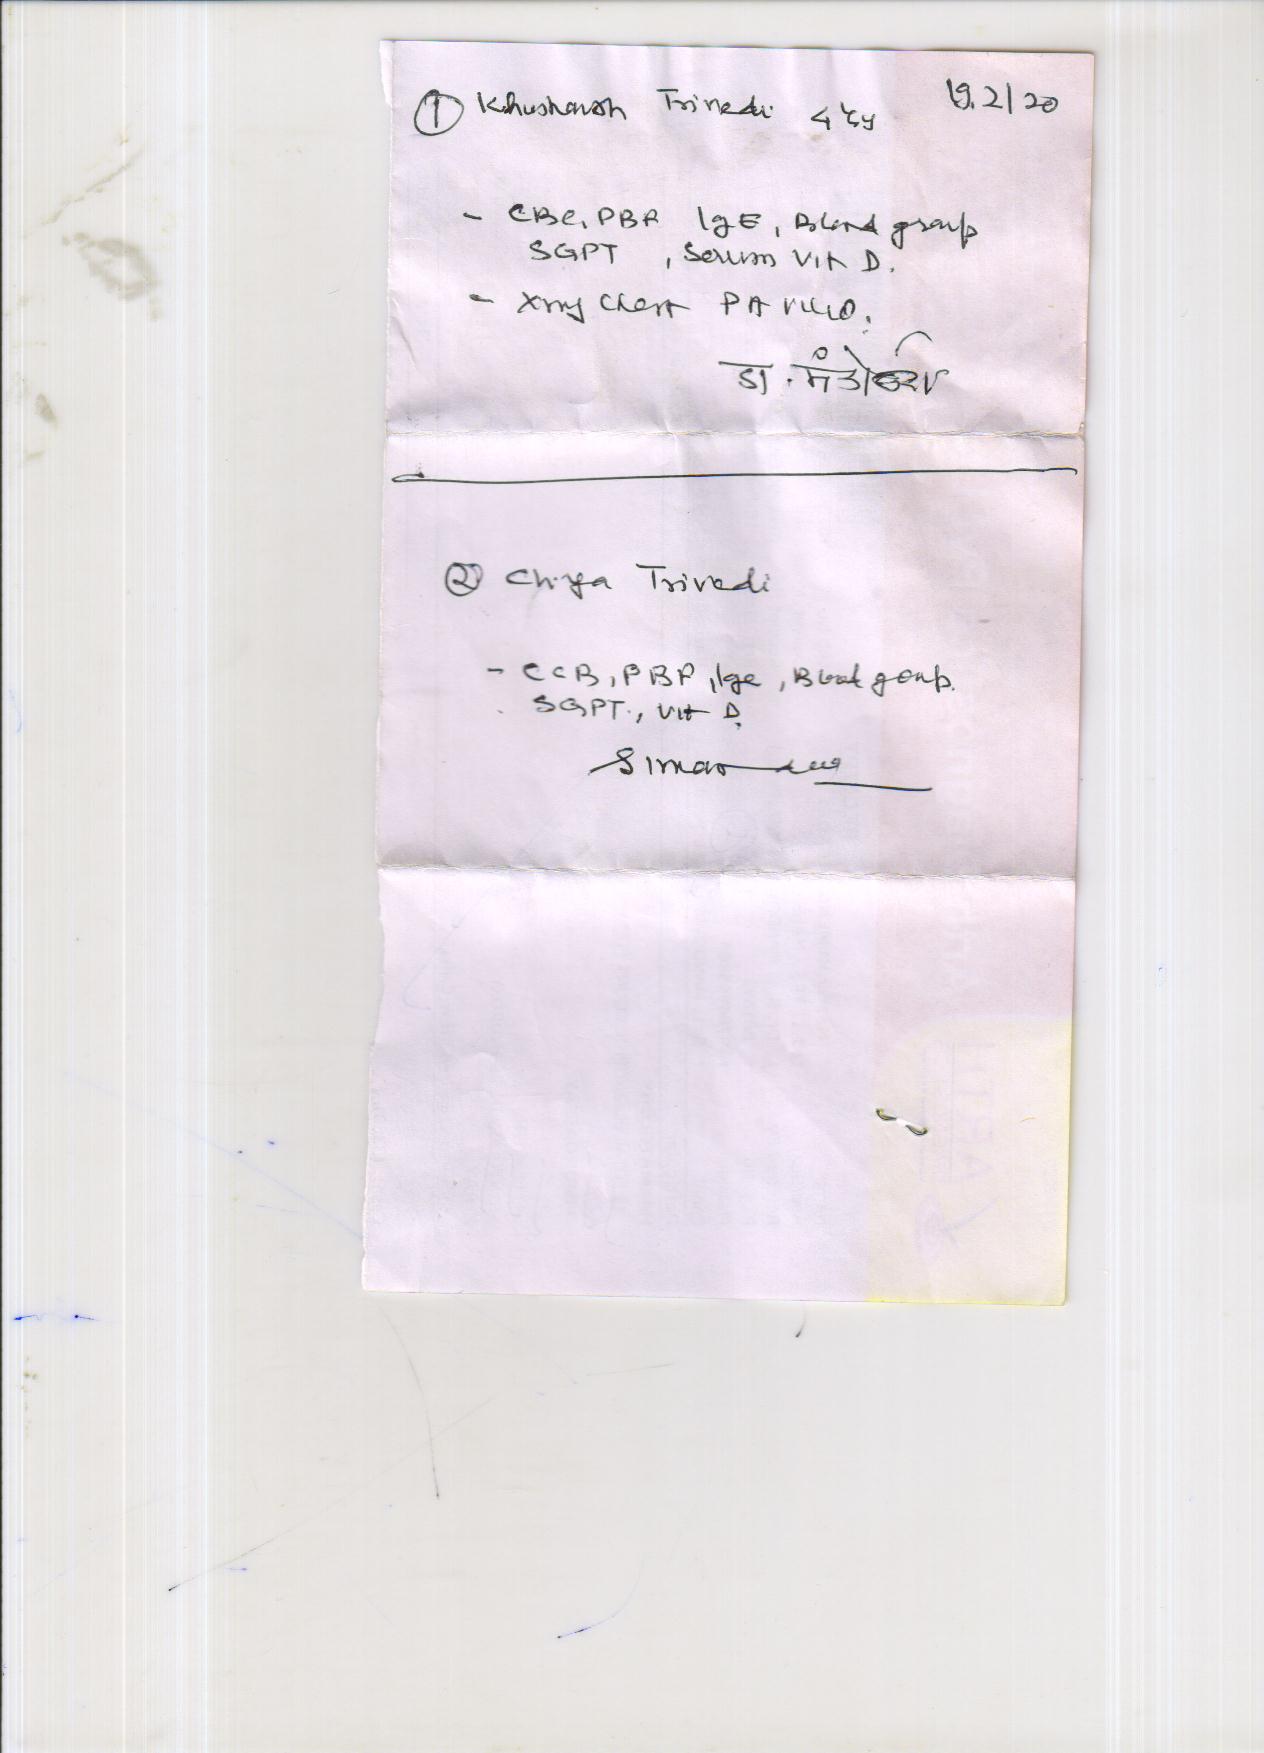 ① Khushansh Trivedi
19.2/20
- CBC, PBF IgE, Blood group
SGPT, Serum Vit D.
- Xray Chest PA view.
डा.
② Trivedi
- CCB, PBF, Ige, Blood group.
SGPT., Vit D.